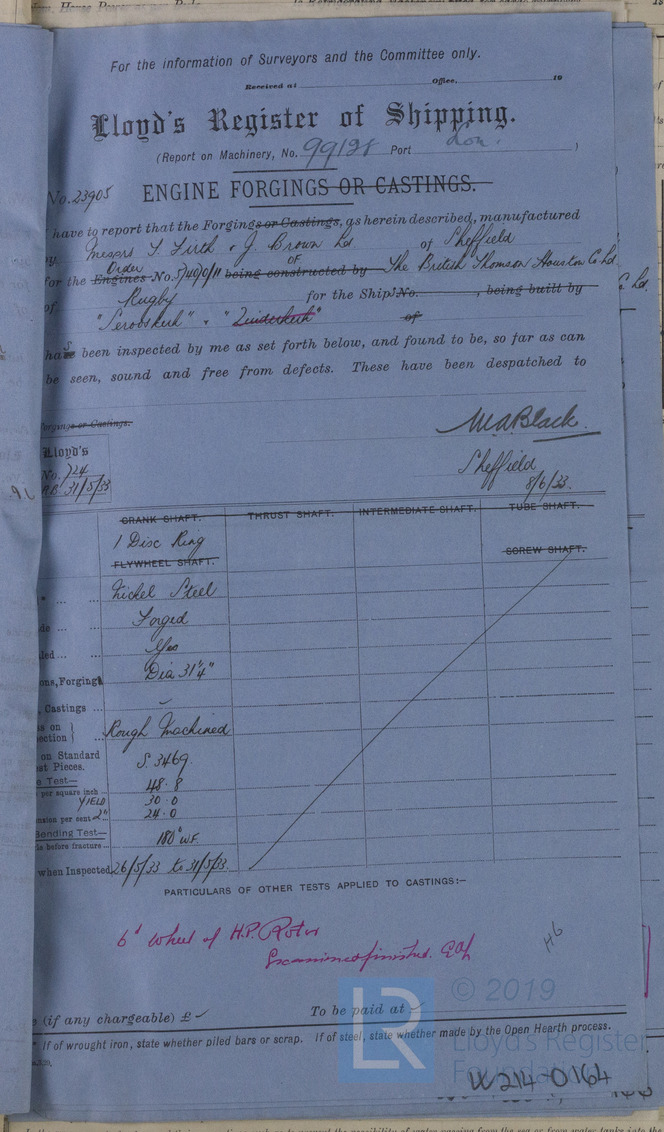 For the information of Surveyors and the Committee only.
Received at Office, 19
Lloyd's Register of Shipping.
(Report on Machinery, No. 99128 Port Lon. )
No. 23905 ENGINE FORGINGS OR CASTINGS.
have to report that the Forgings or Castings, as herein described, manufactured
by Messrs T. Firth & J. Brown Ld of Sheffield
for the Engines Order No. 5/40/0/11 being constructed by OF The British Thomson Houston Co. Ld.
of Rugby for the Ship No. , being built by
"Serooskerk" & "Zuiderkerk" of
has been inspected by me as set forth below, and found to be, so far as can
be seen, sound and free from defects. These have been despatched to
Forgings or Castings.
W.A. Black.
Lloyd's
No. 724
31/5/33
Sheffield
8/6/33.
CRANK SHAFT. THRUST SHAFT. INTERMEDIATE SHAFT. TUBE SHAFT.
1 Disc Ring
FLYWHEEL SHAFT. SCREW SHAFT.
* ... ... Nickel Steel
de ... ... Forged
led ... ... Yes
ons, Forging Dia 31¼"
, Castings ...
s on ection Rough Machined
on Standard st Pieces. S. 3469.
e Test—
per square inch ... 48.8
YIELD 30.0
nsion per cent 2" 24.0
Bending Test—
le before fracture ... 180° W.F.
when Inspected 26/5/33 to 31/5/33.
PARTICULARS OF OTHER TESTS APPLIED TO CASTINGS:—
6th Wheel of H.P. Rotor
Examined finished.
46
(if any chargeable) £ To be paid at
* If of wrought iron, state whether piled bars or scrap. If of steel, state whether made by the Open Hearth process.
© 2019
LR
Lloyd's Register
Foundation
W214-0164